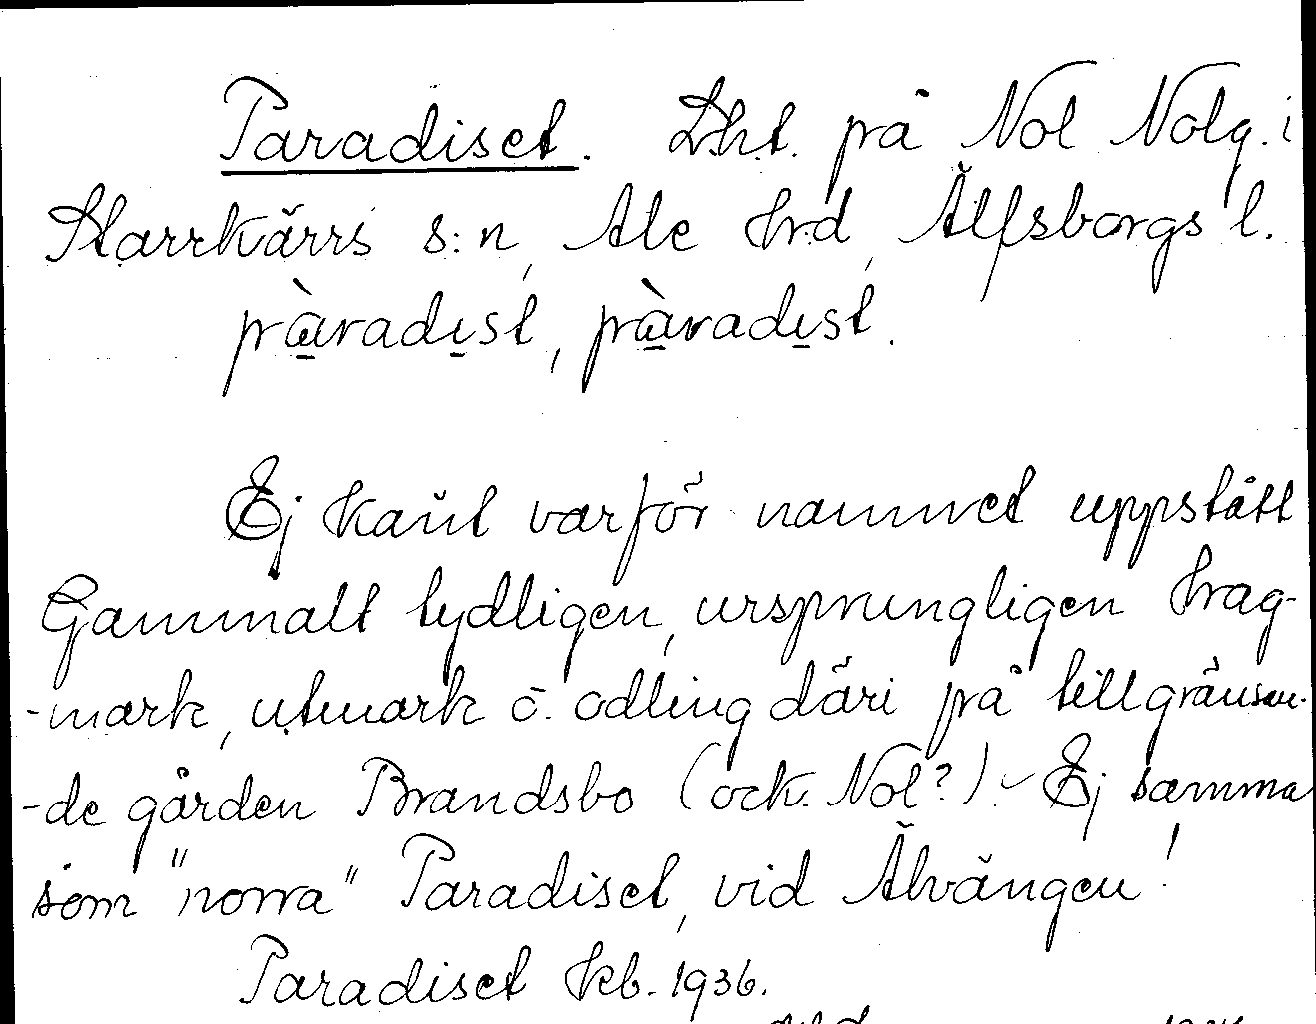 Paradiset. Lht. på Nol Nolg. i
Starrkärrs s:n, Ale hrd, Älfsborgs l.
pàradist, pàradist.
Ej känt varför namnet uppstått
Gammalt tydligen, ursprungligen hag-
-mark, utmark o. odling däri på tillgränsan-
-de gården Brandsbo (ock. Nol?). - Ej samma
som "norra" Paradiset, vid Älvängen!
Paradiset kb. 1936.